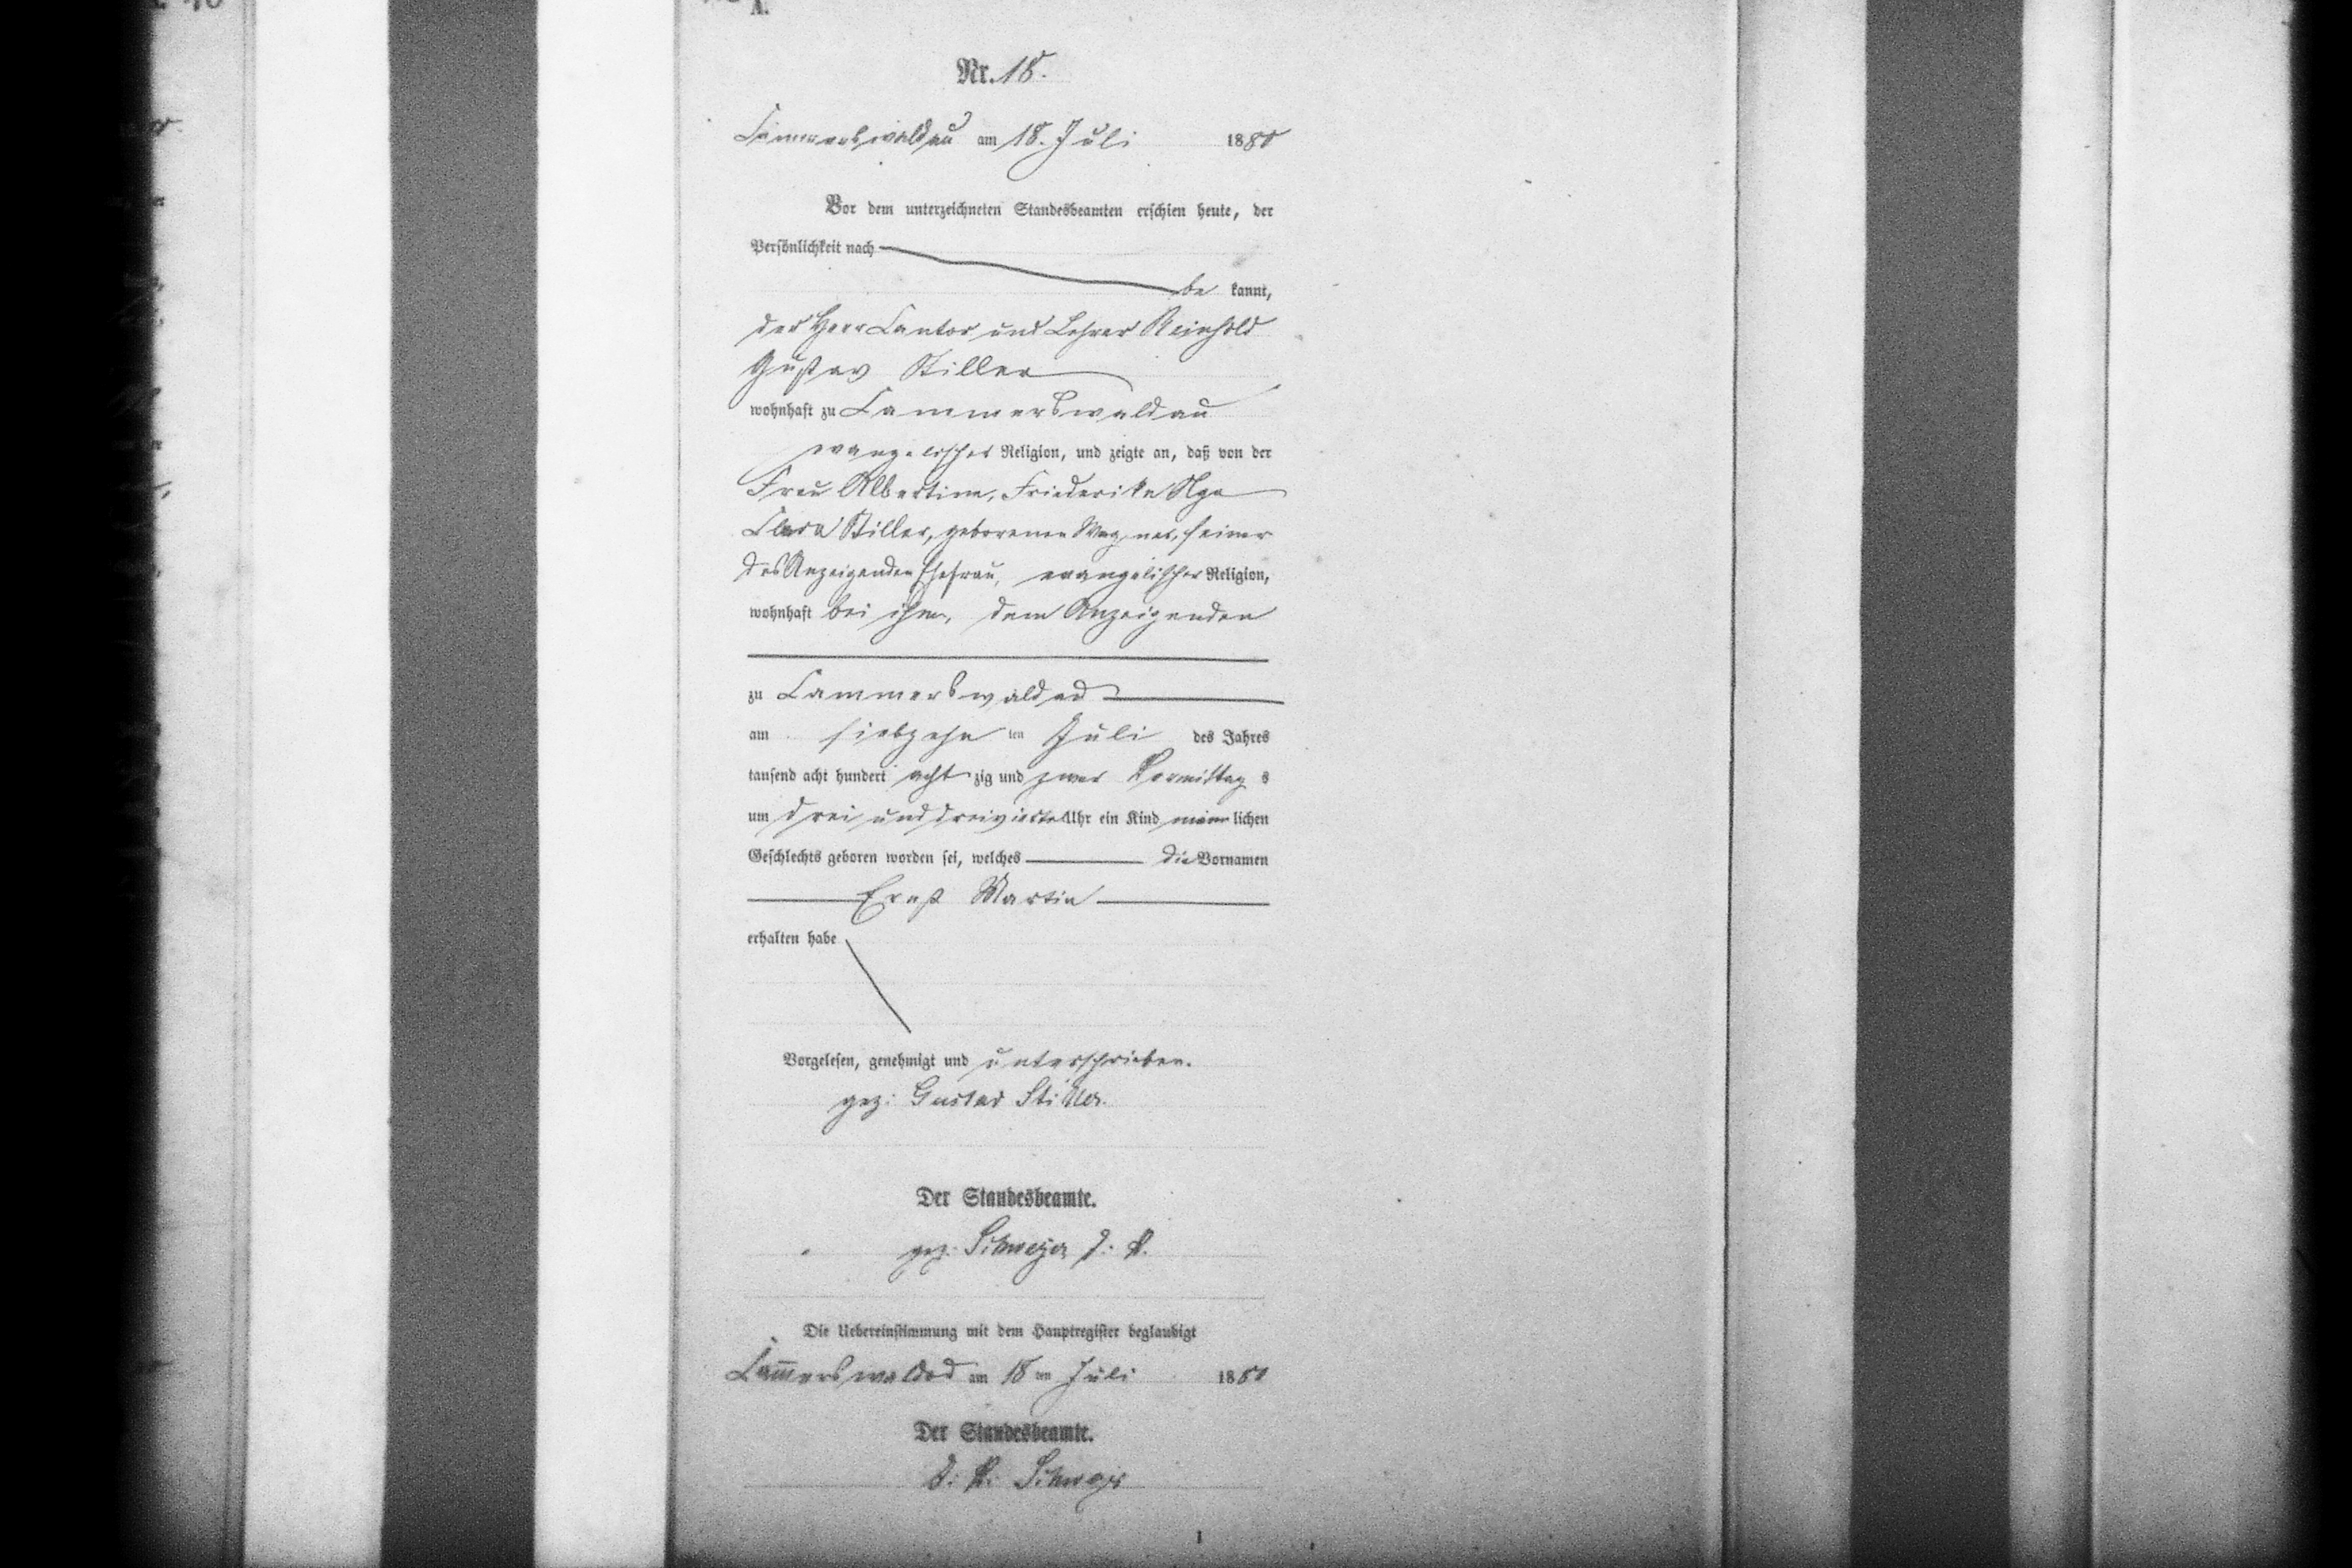 A.
Nr. 18.
Cammerswaldau am 18. Juli 1880
Vor dem unterzeichneten Standesbeamten erschien heute, der
Persönlichkeit nach
be kannt,
der Herr Cantor und Lehrer Reinhold
Gustav Stiller
wohnhaft zu Cammerswaldau
evangelischer Religion, und zeigte an, daß von der
Frau Albertine, Friederike
Clara Stiller, geborenen Wagner, seiner
des Anzeigenden Ehefrau, evangelischer Religion,
wohnhaft bei ihm, dem Anzeigenden
zu Cammerswaldau
am siebzehn ten Juli des Jahres
tausend acht hundert acht zig und zwar Vormittag s
um drei und dreiviertel Uhr ein Kind männ lichen
Geschlechts geboren worden sei, welches die Vornamen
Ernst Martin
erhalten habe
Vorgelesen, genehmigt und unterschrieben.
gez: Gustav Stiller.
Der Standesbeamte.
gez:
Die Uebereinstimmung mit dem Hauptregister beglaubigt
Cam̄erswaldau am 18 ten Juli 1880
Der Standesbeamte.
1